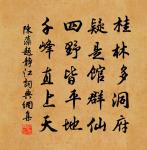 桂林多洞府
疑是馆群仙
四野皆平地
千峰直上天
陈藻题静江词典网集